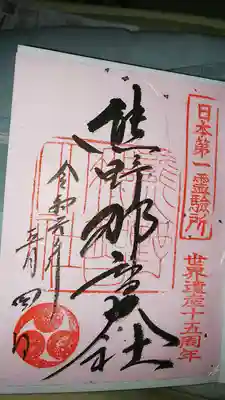 日本第一霊験所
世界遺産十五周年
熊野那智大社
令和元年
四日